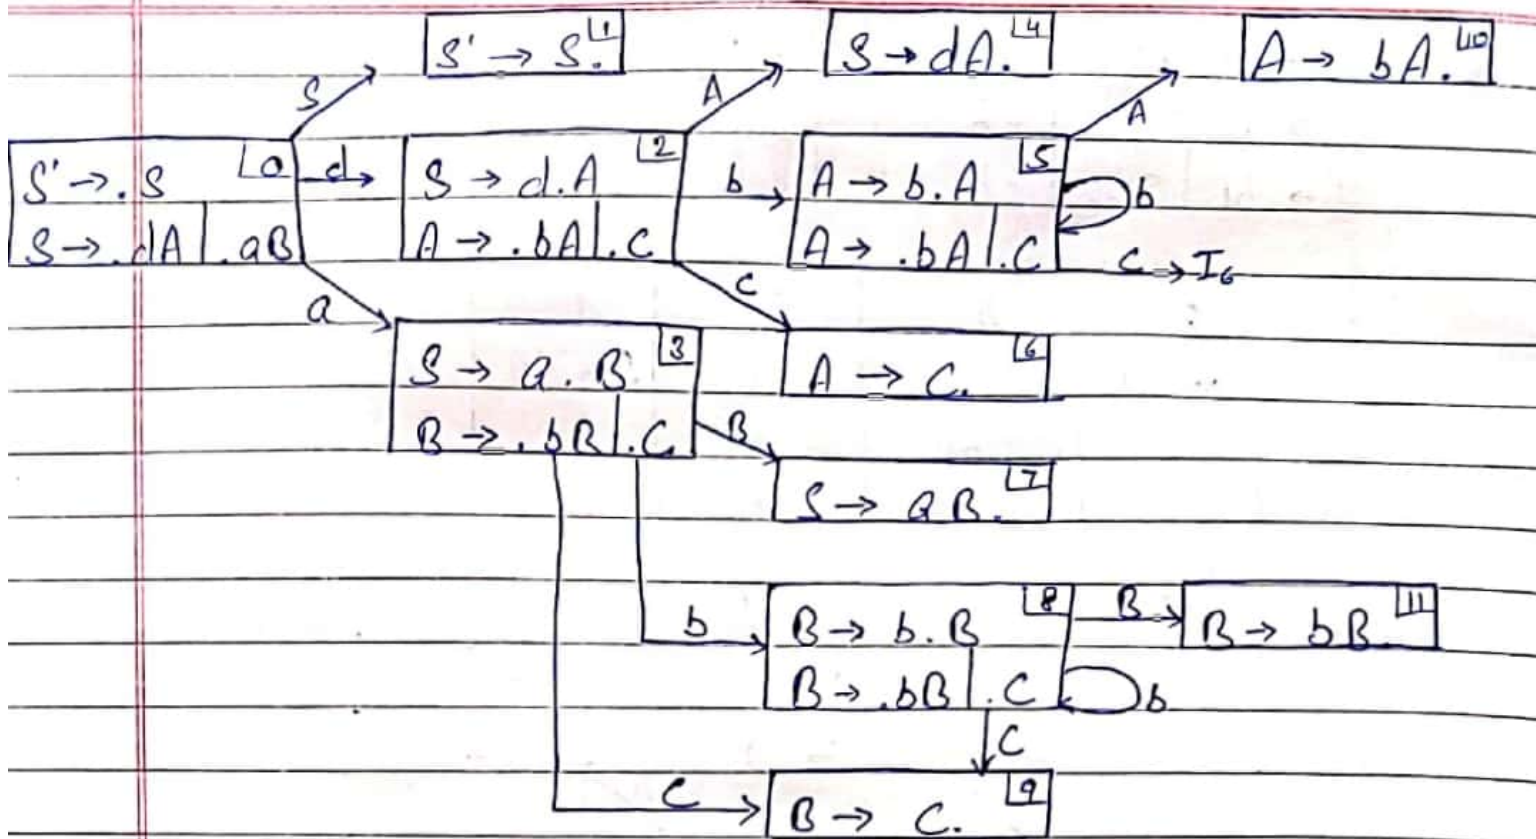 S' → S. 1
S → dA. 4
A → bA. 10
S
A
A
S' → .S 0
S → .dA | .aB
d
S → d.A 2
A → .bA | .C
b
A → b.A 5
A → .bA | .C
b
C → I6
a
C
S → a.B 3
B → .bB | .C
A → C. 6
B
S → aB. 7
b
B → b.B 8
B → .bB | .C
B
B → bB. 11
b
C
C
B → C. 9